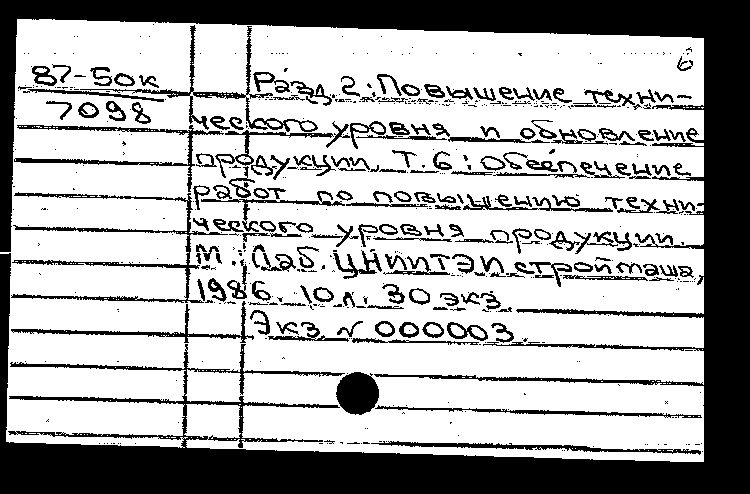 6
87-50к
7098
Разд. 2: Повышение техни-
ческого уровня и обновление
продукции. Т. 6: Обеспечение
работ по повышению техни-
ческого уровня продукции.
М.: Лаб. ЦНИИТЭИстроймаша,
1986. 10 л. 30 экз.
Экз. N 000003.